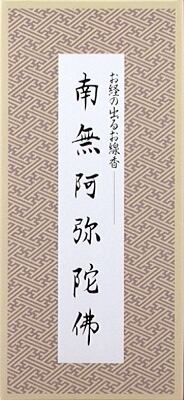 お経の出るお線香
南無阿弥陀佛